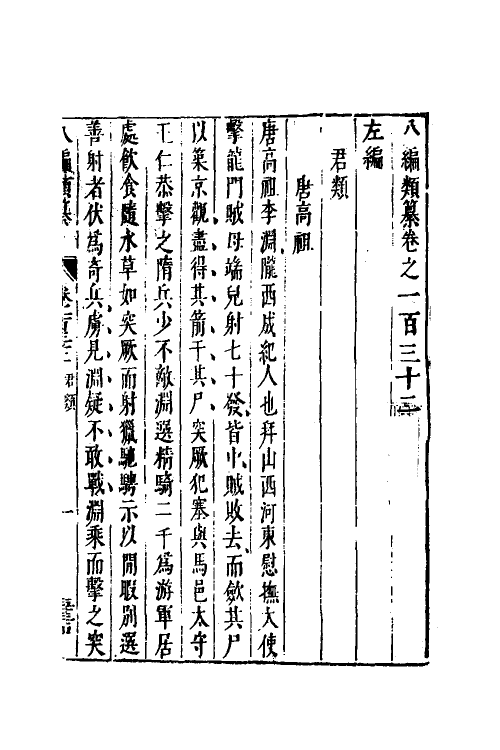 八編類纂卷之一百三十二
左編
君類
唐高祖
唐高祖李淵隴西成紀人也拜山西河東慰撫大使
擊龍門賊母端兒射七十發皆中賊敗去而斂其尸
以築京觀盡得其箭于其尸突厥犯塞與馬邑太守
王仁恭擊之隋兵少不敵淵選精騎二千爲游軍居
處飲食隨水草如突厥而射獵馳騁示以閒暇別選
善射者伏爲奇兵虜見淵疑不敢戰淵乘而擊之突
八編類纂
君類
一